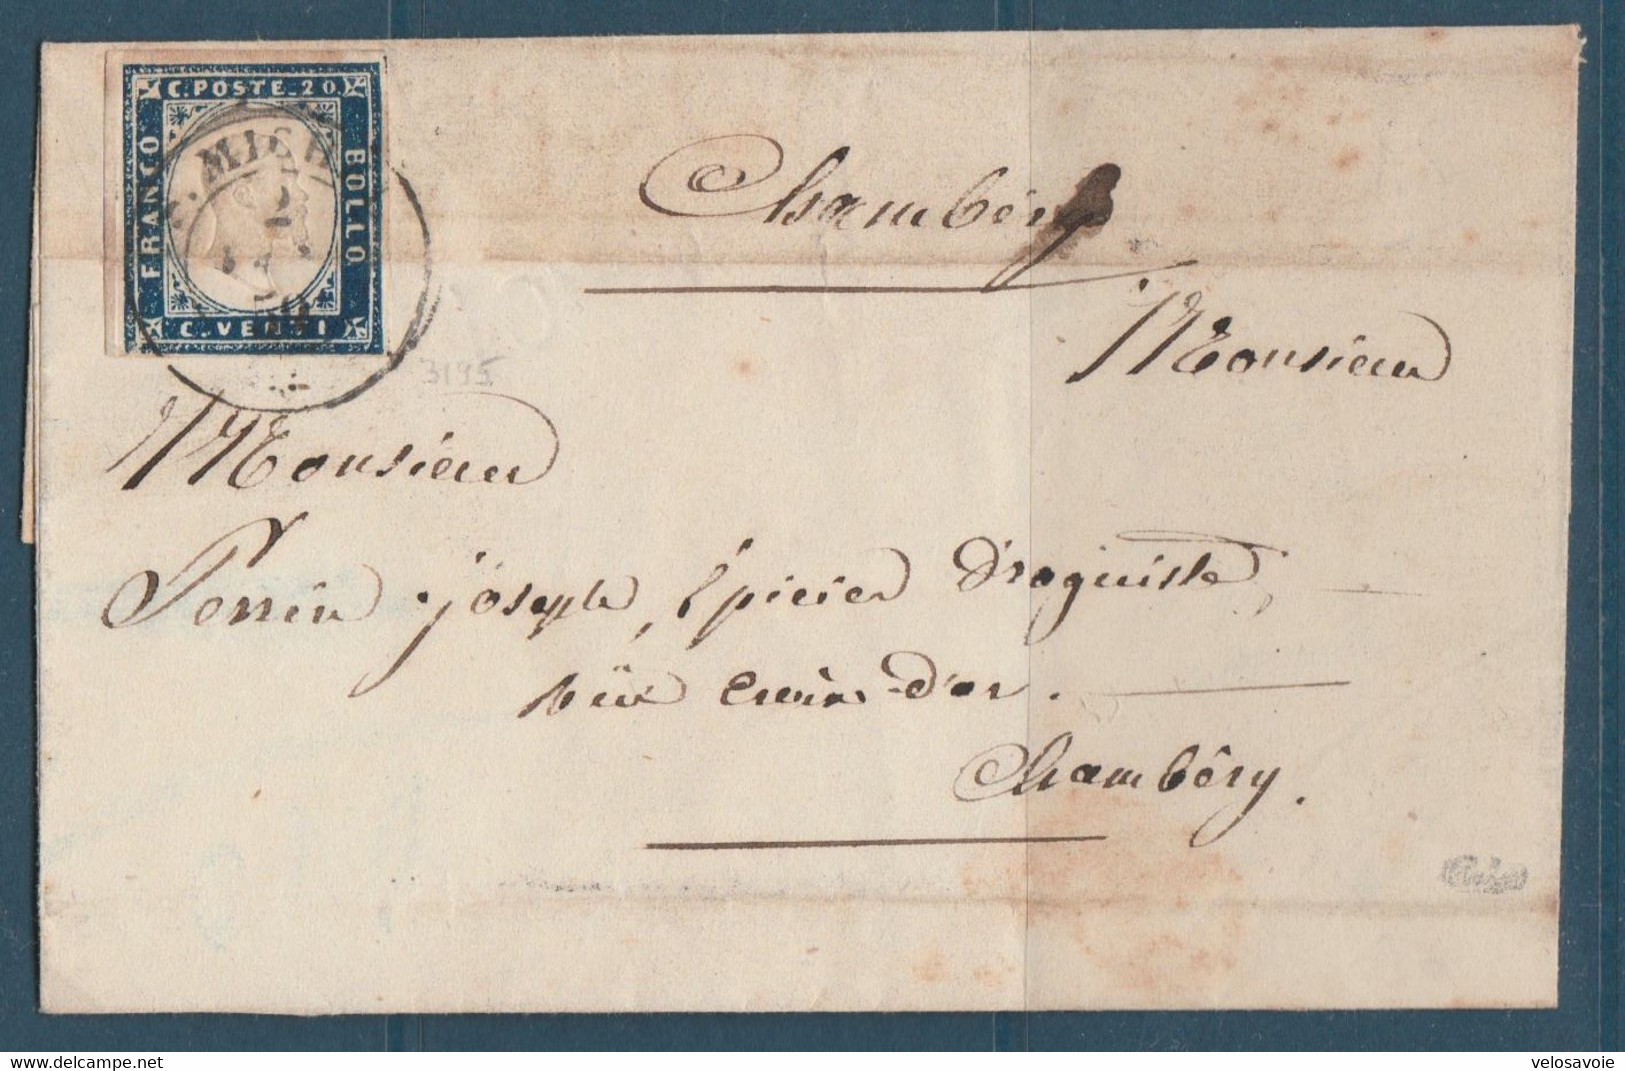 C. POSTE. 20.
FRANCO
BOLLO
C. VENTI
S. MICHE
59
3195
Chambéry
Monsieur
Monsieur
Perrin joseph, Épicier Droguiste,
aux Croix-d'or.
Chambéry.
velosavoie